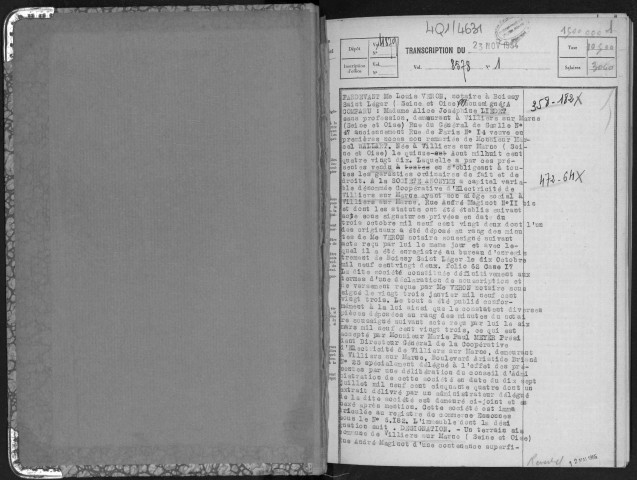 4Q1/4631
1500.000
Dépôt
Vol. 1829
N°
Inscription d'office
Vol.
N°
TRANSCRIPTION DU 23 NOV 1954
Vol. 8578 n° 1
Taxe
Salaires 3000
358-182X
472-64X
PARDEVANT Me Louis VERON, notaire à Boissy
Saint Léger ( Seine et Oise) soussigné A
COMPARU : Madame Alice Joséphine
sans profession, demeurant à Villiers sur Marne
(Seine et Oise) Rue du Général de Gaulle N°
47 anciennement Rue de Paris N° 14 veuve en
premières noces non remariée de Monsieur Mar-
cel MALLANT. Née à Villiers sur Marne ( Sei-
ne et Oise) le quinze août mil huit cent
quatre vingt dix. Laquelle a par ces pré-
sentes vendu en s'obligeant à tou-
tes les garanties ordinaires de fait et de
droit. A la SOCIETE ANONYME à capital varia-
ble dénommée Coopérative d'Electricité de
Villiers sur Marne ayant son siège social à
Villiers sur Marne, Rue André Maginot N° II bis
et dont les statuts ont été établis suivant
acte sous signatures privées en date du
trois octobre mil neuf cent vingt deux dont l'un
des originaux a été déposé au rang des minu
tes de Me VERON notaire soussigné suivant
acte reçu par lui le même jour et avec le-
quel il a été enregistré au bureau d'enregis
trement de Boissy Saint Léger le dix Octobre
mil neuf cent vingt deux. folio 62 Case I7
La dite société constituée définitivement aux
termes d'une déclaration de souscription et
de versement reçue par Me VERON notaire sous
signé le vingt trois janvier mil neuf cent
vingt trois. Le tout a été publié confor-
mément à la loi ainsi que le constatent diverses
pièces déposées au rang des minutes du notai
re soussigné suivant acte reçu par lui le six
mars mil neuf cent vingt trois, ce qui est
accepté par Monsieur Marie Paul MEYER Prési
dent Directeur Général de la Coopérative
d'Electricité de Villiers sur Marne, demeurant
à Villiers sur Marne, Boulevard Aristide Briand
N° 20 spécialement délégué à l'effet des pré-
sentes par une délibération du conseil d'admi
nistration de cette société en date du dix sept
juillet mil neuf cent cinquante quatre dont un
extrait délivré par un administrateur délégué
de la dite société est demeuré ci-joint et an
nexé après mention. Cette société est imma
triculée au registre du commerce Essonnes
sous le N° 6.182. L'immeuble dont la dési
gnation suit : DESIGNATION. - Un terrain sis
commune de Villiers sur Marne ( Seine et Oise)
Rue André Maginot d'une contenance superfi-